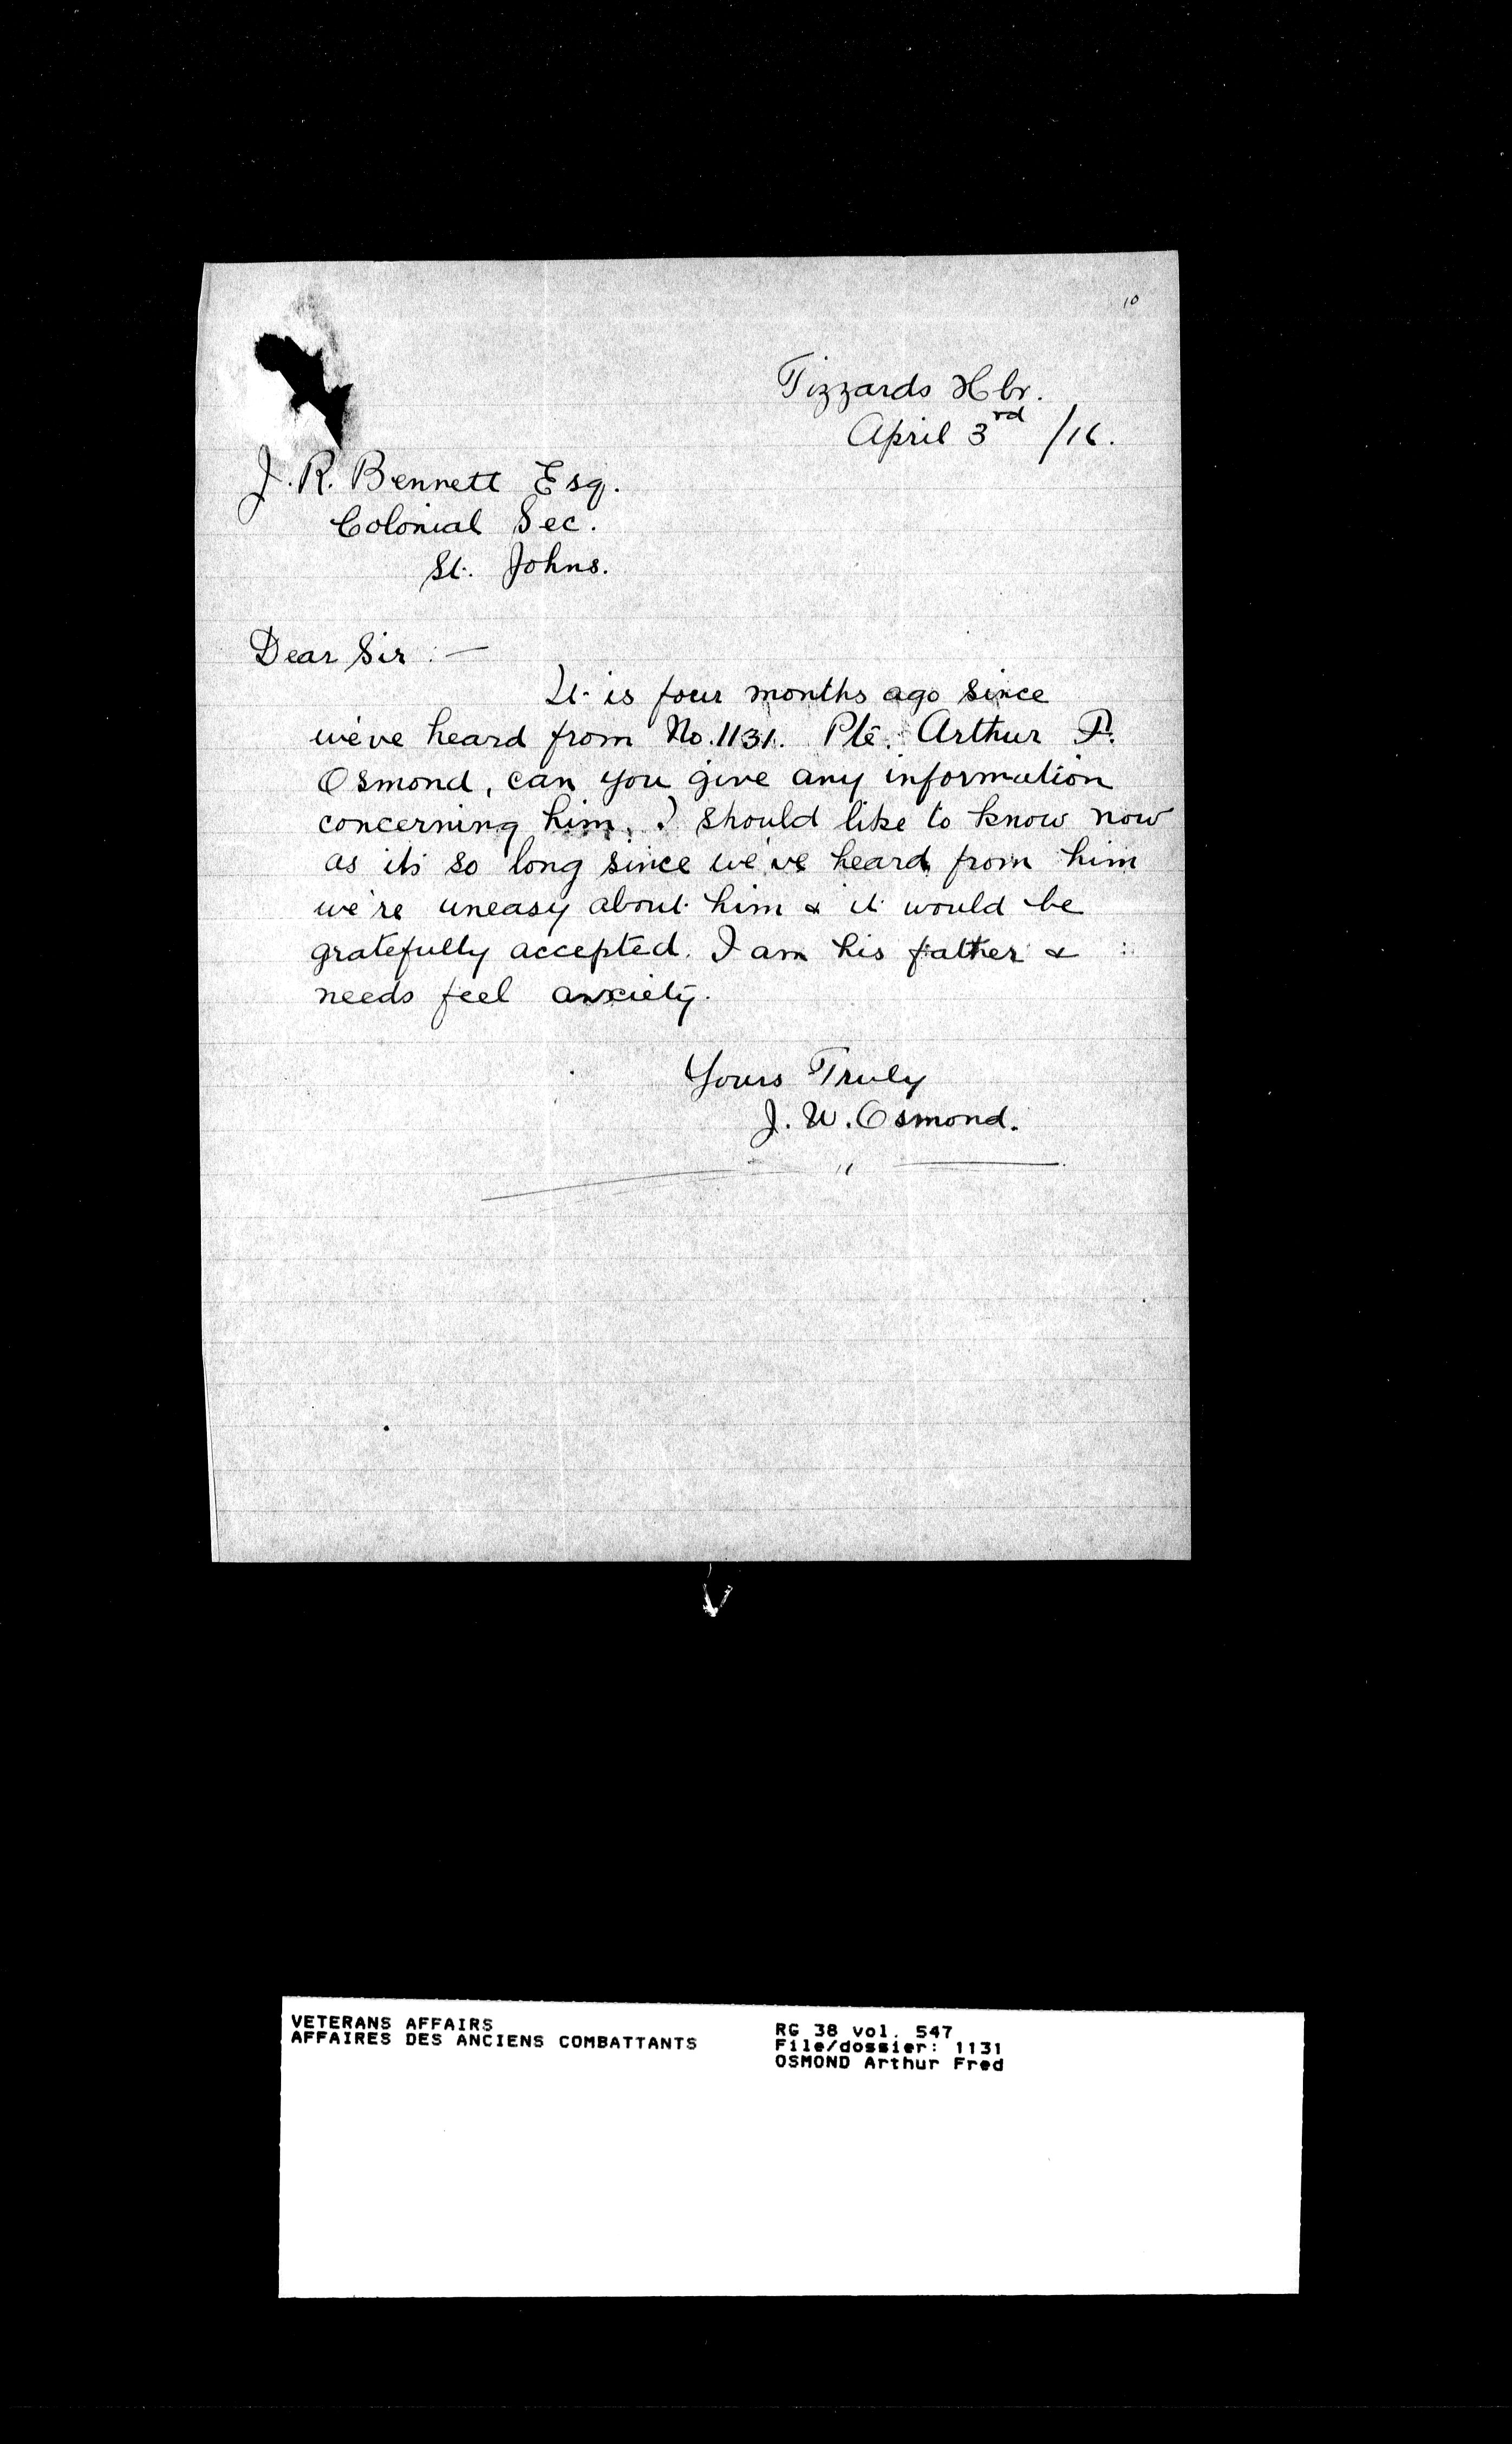 10
Tizzards Hbr.
April 3rd /16.
J. R. Bennett Esq.
Colonial Sec.
St. Johns.
Dear Sir :—
It is four months ago since
we've heard from No. 1131. Pte. Arthur F.
Osmond, can you give any information
concerning him. I should like to know now
as its so long since we've heard from him
we're uneasy about him & it would be
gratefully accepted. I am his father &
needs feel anxiety.
Yours Truly
J. W. Osmond.
VETERANS AFFAIRS
AFFAIRES DES ANCIENS COMBATTANTS
RG 38 vol. 547
File/dossier: 1131
OSMOND Arthur Fred